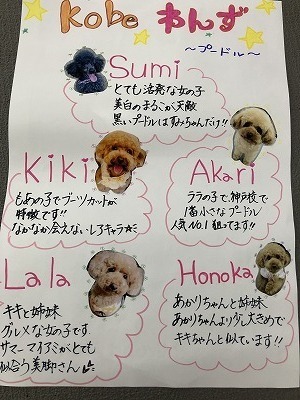 Kobe わんず
～プードル～
Sumi
とても活発な女の子
美白のまるこが天敵
黒いプードルはすみちゃんだけ!!
Kiki
もあの子でブーツカットが
特徴です!!
なかなか会えないレアキャラ☆
Akari
ララの子で、神戸校で
1番小さなプードル
人気No.1狙ってます!!
Lala
キキと姉妹
グルメな女の子です
サマーマイアミがとても
似合う美脚さん
Honoka
あかりちゃんと姉妹
あかりちゃんより少し大きめで
キキちゃんと似ています!!